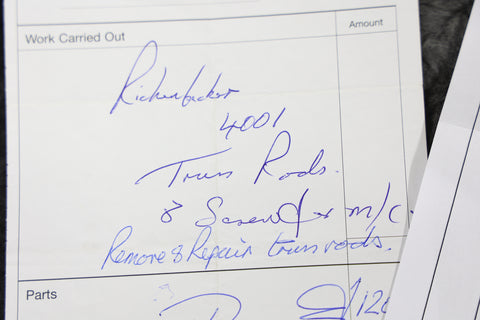 Work Carried Out
Amount
Rickenbacker
4001
Truss Rods.
& Screw m/c
Remove & Repair truss rods.
Parts
£/120